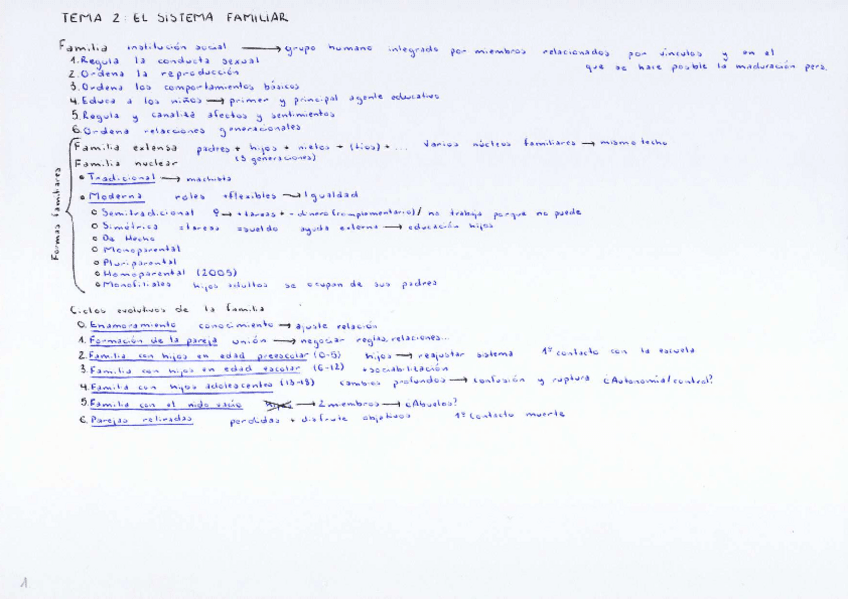 TEMA 2: EL SISTEMA FAMILIAR
Familia institución social → grupo humano integrado por miembros relacionados por vínculos y en el que se hace posible la maduración pers.
1. Regula la conducta sexual
2. Ordena la reproducción
3. Ordena los comportamientos básicos
4. Educa a los niños → primer y principal agente educativo
5. Regula y canaliza afectos y sentimientos
6. Ordena relaciones generacionales
Formas familiares
Familia extensa padres + hijos + nietos + (tíos) + ... Varios núcleos familiares → mismo techo
(3 generaciones)
Familia nuclear
• Tradicional → machista
• Moderna roles +flexibles → Igualdad
o Semitradicional ♀ → +tareas + -dinero (complementario) / no trabaja porque no puede
o Simétrica =tareas =sueldo ayuda externa → educación hijos
o De Hecho
o Monoparental
o Pluriparental
o Homoparental (2005)
o Monofiliales hijos adultos se ocupan de sus padres
Ciclos evolutivos de la familia
0. Enamoramiento conocimiento → ajuste relación
1. Formación de la pareja unión → negociar reglas, relaciones...
2. Familia con hijos en edad preescolar (0-5) hijos → reajustar sistema 1º contacto con la escuela
3. Familia con hijos en edad escolar (6-12) +sociabilización
4. Familia con hijos adolescentes (13-18) cambios profundos → confusión y ruptura ¿Autonomía/control?
5. Familia con el nido vacío → 2 miembros → ¿Abuelos?
6. Parejas retiradas perdidas + disfrute objetivos 1º contacto muerte
1